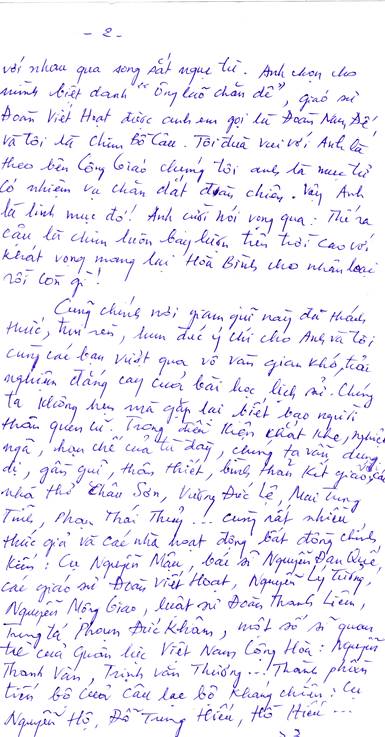 - 2 -
với nhau qua song sắt ngục tù. Anh chọn cho
mình biệt danh "Ông lão chăn dê", giáo sư
Đoàn Viết Hoạt được anh em gọi là Đoàn Nam Đế,
và tôi là chim Bồ Câu. Tôi đùa vui với Anh là
theo bên Công Giáo chúng tôi anh là mục tử
có nhiệm vụ chăn dắt đoàn chiên. Vậy Anh
là linh mục đó! Anh cười nói vọng qua: Thế ra
cậu là chim luôn bay lượn trên trời cao với
khát vọng mang lại Hòa Bình cho nhân loại
rồi còn gì!
Cũng chính nơi giam giữ này đã thách
thức, tôi rèn, hun đúc ý chí cho Anh và tôi
cùng các bạn vượt qua vô vàn gian khó, trải
nghiệm đắng cay của bài học lịch sử. Chúng
ta không hẹn mà gặp lại biết bao người
thân quen cũ. Trong điều kiện khắt khe, nghiệt
ngã, hạn chế của tù đày, chúng ta vẫn dung
dị, gần gũi, thân thiết, bình thản kết giao với các
nhà thơ Châu Sơn, Vương Đức Lệ, Mai Trung
Tĩnh, Phan Thái Thụy ... cùng rất nhiều
thức giả và các nhà hoạt động bất đồng chính
kiến: Cụ Nguyễn Mậu, bác sĩ Nguyễn Đan Quế,
các giáo sư Đoàn Viết Hoạt, Nguyễn Lý Tưởng,
Nguyễn Mộng Giao, luật sư Đoàn Thanh Liêm,
Trung tá Phạm Đức Khâm, một số sĩ quan
trẻ của Quân lực Việt Nam Cộng Hòa: Nguyễn
Thanh Vân, Trịnh Văn Thương ... Thành phần
tiến bộ của câu lạc bộ kháng chiến: Cụ
Nguyễn Hộ, Đỗ Trung Hiếu, Hồ Hiếu ...